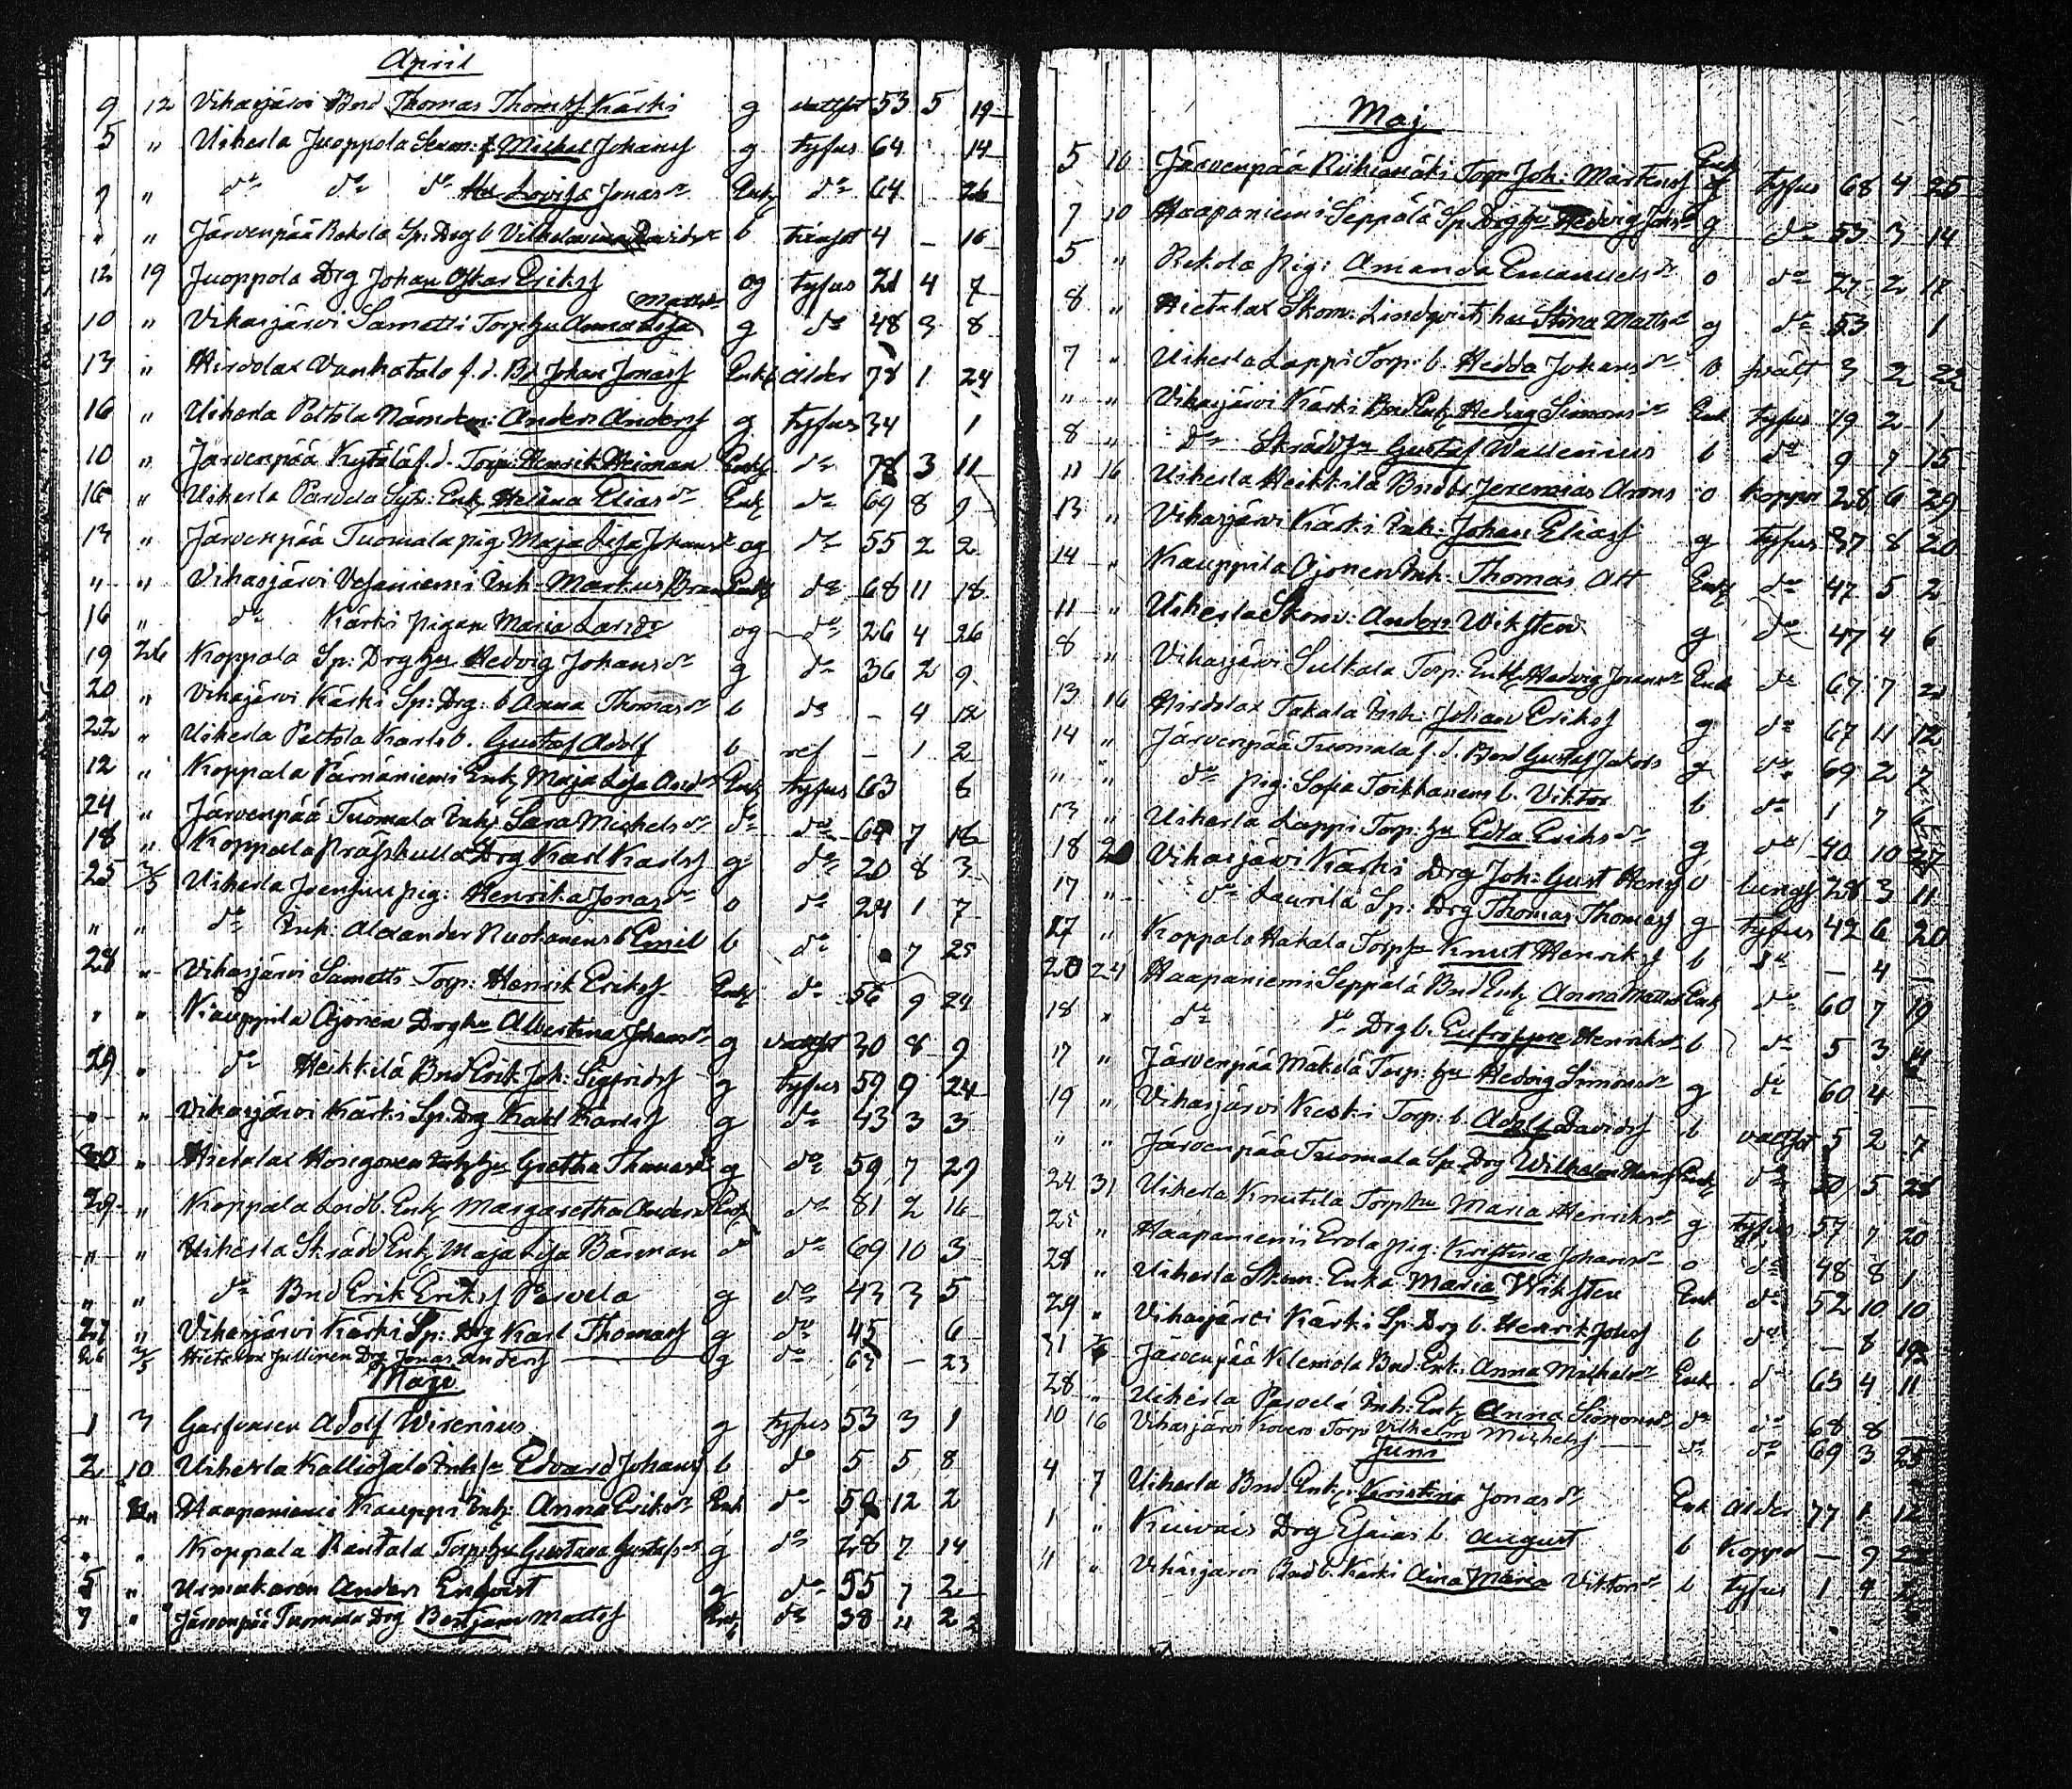 April
9 12 Vihasjärvi Bnd Thomas Thomsf Kärki g vattsot 53 5 19
5 " Uiherla Juoppola Skom: f Michel Johansf g tyfus 64 14
9 " do do do Hu Lovisa Jonasdr Enk do 64 26
" " Järvenpää Rekola Sp: Drg b Vilhelmina Davidsdr b 4 – 16
12 19 Juoppola Drg Johan Oskar Eriksf og tyfus 21 4 7
Mattsdr
10 " Vihasjärvi Sametti Torp hu Anna Lisa g do 48 3 8
13 " Hirdolax Vanhatalo f.d. Bd Johan Jonasf Enkl ålder 78 1 24
16 " Uiherla Peltola Nämdem: Anders Andersf g tyfus 34 1
10 " Järvenpää Kytölä f.d. Torp: Henrik Heiman Enkl do 78 3 11
16 " Uiherla Parvela Syt: Enk Helena Eliasdr Enk do 69 8 9
13 " Järvenpää Tuomala pig Maja Lisa Johansdr og do 55 2 2
" " Vihasjärvi Vesaniemi Inh: Markus Enkl do 68 11 18
16 " do Kärki pigan Maria Larsdr og do 26 4 26
19 26 Koppala Sp: Drg hu Hedvig Johansdr g do 36 2 9
20 " Vihasjärvi Kärki Sp: Drg: b Anna Thomasdr b do – 4 12
22 " Uiherla Peltola Karls b. Gustaf Adolf b ref – 1 2
12 " Koppala Pärnäniemi Enk Maja Lisa Andsdr Enk tyfus 63 8
24 " Järvenpää Tuomala Inh: Sara Michelsdr do do 64 7 16
18 " Koppala Prästkulla Drg Karl Karlsf g do 20 8 3
25 3/5 Uiherla Joensuu pig: Henrika Jonasdr o do 24 1 7
" " do Inh: Alexander Ruokonens b Emil b do 7 25
28 " Vihasjärvi Sametti Torp: Henrik Eriksf Enk do 56 9 24
" " Kauppila Ajonen Drg hu Albertina Johansdr g vattsot 30 8 9
29 " do Heikkilä Bnd Erik Joh: Sigfridsf g tyfus 59 9 24
" " Vihasjärvi Kärki Sp: Drg Karl Karlsf g do 43 3 3
30 " Hietalax hu Gretha Thomasdr g do 59 7 29
29 " Koppala Lndb. Enk Margaretha Andersdr Enk do 81 2 16
" " Uiherla Skrädd Enk Maja Lisa Bärman do do 69 10 3
" " do Bnd Erik Eriksf Parvela g do 43 3 5
27 " Vihasjärvi Kärki Sp: Drg Karl Thomasf g do 45 6
26 3/5 Hietalax Jullinen Drg Jonas Andersf g do 63 – 23
Maji
1 3 Garfvaren Adolf Wirenius g tyfus 53 3 1
2 10 Uiherla Kalliosalo Inh: Edvard Johansf b do 5 5 8
" " Haapaniemi Kauppi Inh: Anna Eriksdr Enk do 59 12 2
" " Koppala Rantala Torp hu Gustava Gustafsdr g do 28 7 14
5 " Urmakaren Anders Enqvist g do 55 7 2
7 " Järvenpää Tuomala Drg Benjam Mattsf Enk do 38 11 22
Maj
5 10 Järvenpää Riihimäki Torp: Joh: Mårtensf Enk tyfus 68 4 25
7 10 Haapaniemi Seppälä Sp: Drg hu Hedvig g do 53 3 14
5 " Rekola pig: Amanda Emanuelsdr o do 27 2 17
8 " Hietalax Skom: Lindqvists hu Stina Mattsdr g do 53 1
7 " Uiherla Lappi Torp: b. Hedda Johansdr b svält 3 2 22
" " Vihasjärvi Kärki Bnd Enk Hedvig Simonsdr Enk tyfus 79 2 1
8 " do Skrädd Gustaf Wallenius b do 9 7 15
11 16 Uiherla Heikkilä Bnd b. Jeremias Arons o koppor 28 6 29
13 " Vihasjärvi Kärki Inh: Johan Eliasf g tyfus 37 8 20
14 " Kauppila Ajonen Inh: Thomas Att Enk do 47 5 2
11 " Uiherla Skom: Anders Wiksten g do 47 4 6
8 " Vihasjärvi Sulkala Torp: Enk Hedvig Johansdr Enk do 67 7 21
13 16 Hirdolax Takala Inh: Johan Eriksf g do 67 11 12
14 " Järvenpää Tuomala f.d. Bnd Gustaf Jakobs g do 69 2 7
" " do pig: Sofia Toikkanens b. Viktor b do 1 7
13 " Uiherla Lappi Torp: hu Edla Eriksdr g do 40 10 27
18 20 Vihasjärvi Kärki Drg Joh: Gust Henrsf o lungs 28 3 11
17 " do Laurila Sp: Drg Thomas Thomasf g tyfus 42 6 20
17 " Koppala Hakala Torp Knut Henriksf b do – 4
20 24 Haapaniemi Seppälä Bnd Enk Anna Mattsdr Enk do 60 7 19
18 " do do Drg b. Eufrosyne Henriksdr b do 5 3 14
17 " Järvenpää Mäkelä Torp: hu Hedvig Simonsdr g do 60 4 –
19 " Vihasjärvi Keski Torp: b. Adolf Davidsf b vattsot 5 2 7
" " Järvenpää Tuomala Sp: Drg Wilhelm Enk do 50 5 28
24 31 Uiherla Knutila Torp hu Maria Henriksdr g tyfus 57 7 20
25 " Haapaniemi Erola pig: Kristina Johansdr o do 48 8 1
28 " Uiherla Skom: Enka Maria Wiksten Enk do 52 10 10
29 " Vihasjärvi Kärki Sp: Drg b. Henrik Johsf b do – 8 19
31 Järvenpää Klemola Bnd: Enk: Anna Michelsdr Enk do 63 4 11
28 " Uiherla Parvela Inh: Enk Anna Simonsdr do do 68 8 –
10 16 Vihasjärvi Kovero Torp Vilhelm Michelsf do do 69 3 25
Juni
4 7 Uiherla Bnd Enk: Kristina Jonasdr Enk ålder 77 1 12
1 " Kuivais Drg Esaias b. August b Koppor – 9
" " Vihasjärvi Bnd b. Kärki Aina Maria Viktorsdr b tyfus 1 4